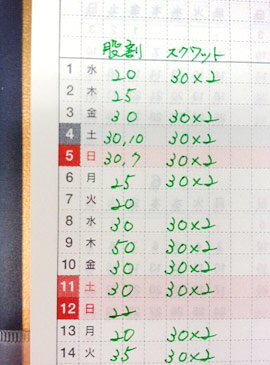 股割 スクワット
1 水 20 30×2
2 木 25
3 金 30 30×2
4 土 30,10 30×2
5 日 30,7 30×2
6 月 25 30×2
7 火 20
8 水 30 30×2
9 木 50 30×2
10 金 30 30×2
11 土 30 30×2
12 日 22
13 月 20 30×2
14 火 35 30×2